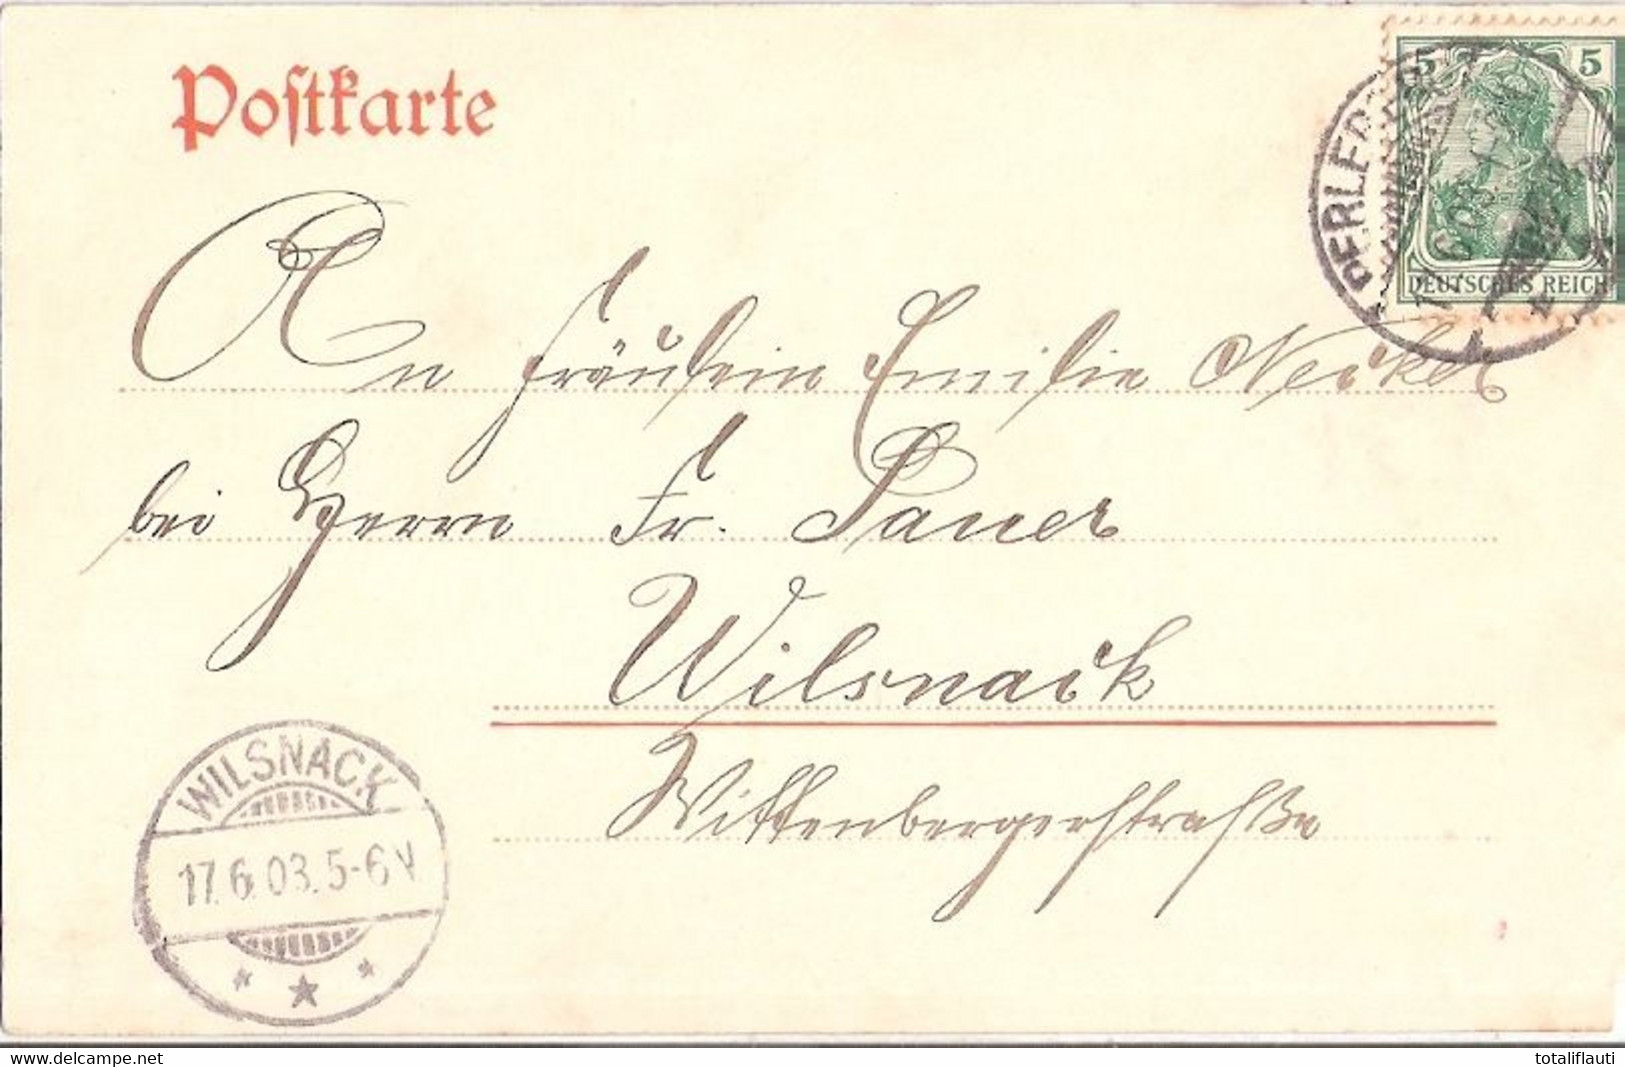 Postkarte
5 5
DEUTSCHES REICH
An Fräulein Emilie Necker
bei Herrn Fr. Pauer
Wilsnack
Wittenbergerstraße
WILSNACK
17.6.03.5-6V
www.delcampe.net
totaliflauti